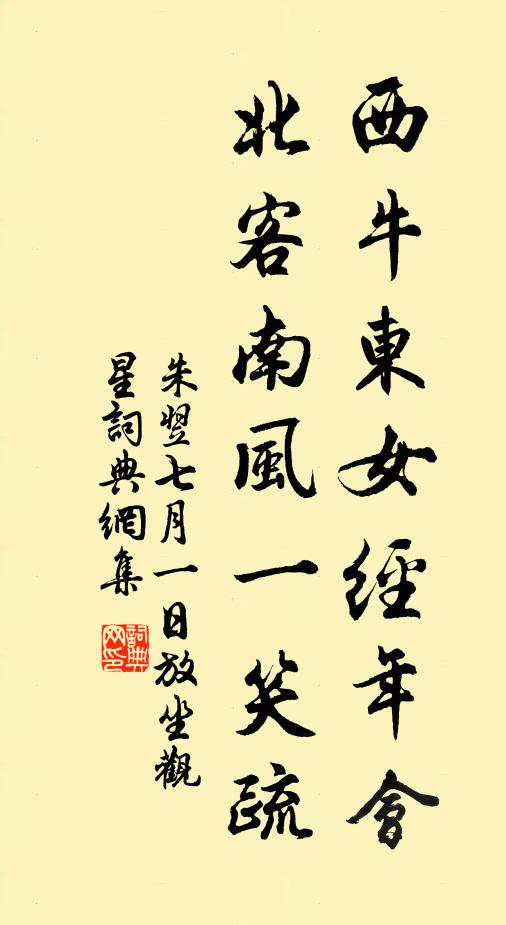 西牛東女經年會
北客南風一笑疏
朱翌七月一日放坐觀
星詞典網集
詞典網印